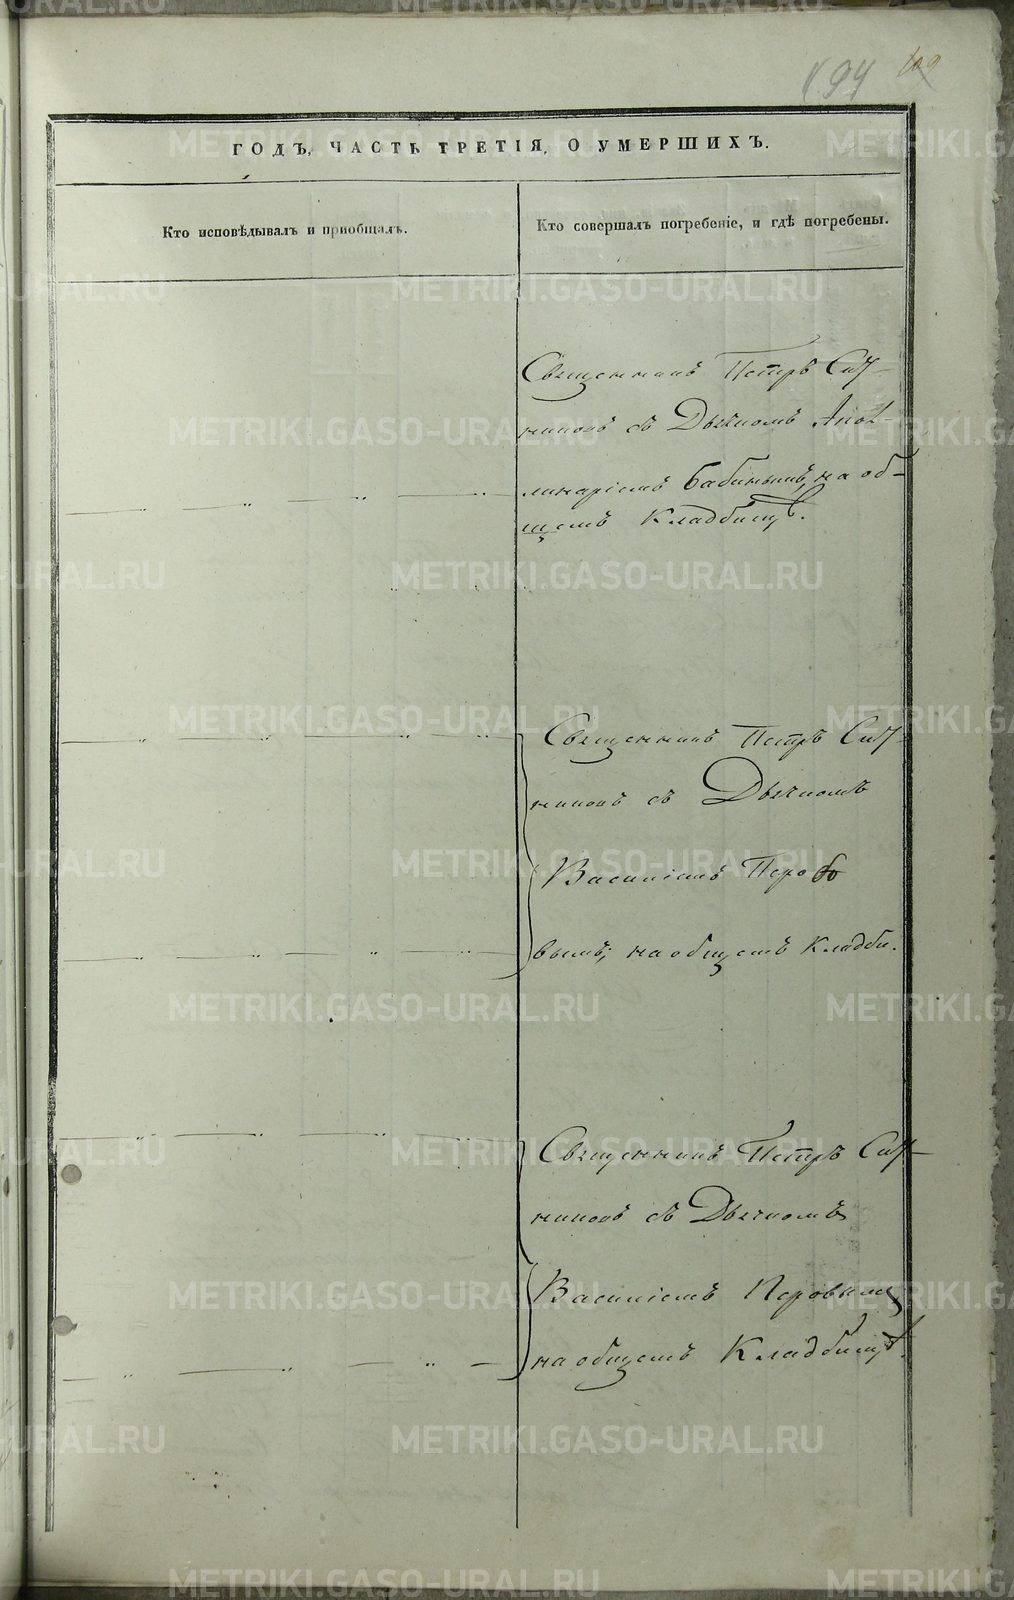 194 109
ГОДЪ, ЧАСТЬ ТРЕТІЯ, О УМЕРШИХЪ.
Кто исповѣдывалъ и пріобщалъ.
Кто совершалъ погребеніе, и гдѣ погребены.
Священникъ Петръ
съ Дьячкомъ Апол-
линаріемъ Бабинымъ, на об-
щемъ Кладбищѣ.
Священникъ Петръ
съ Дьячкомъ
Василіемъ Перо
вымъ; на общемъ Кладби.
Священникъ Петръ
съ Дьячкомъ
Василіемъ Перовымъ,
на общемъ Кладбищѣ.
METRIKI.GASO-URAL.RU